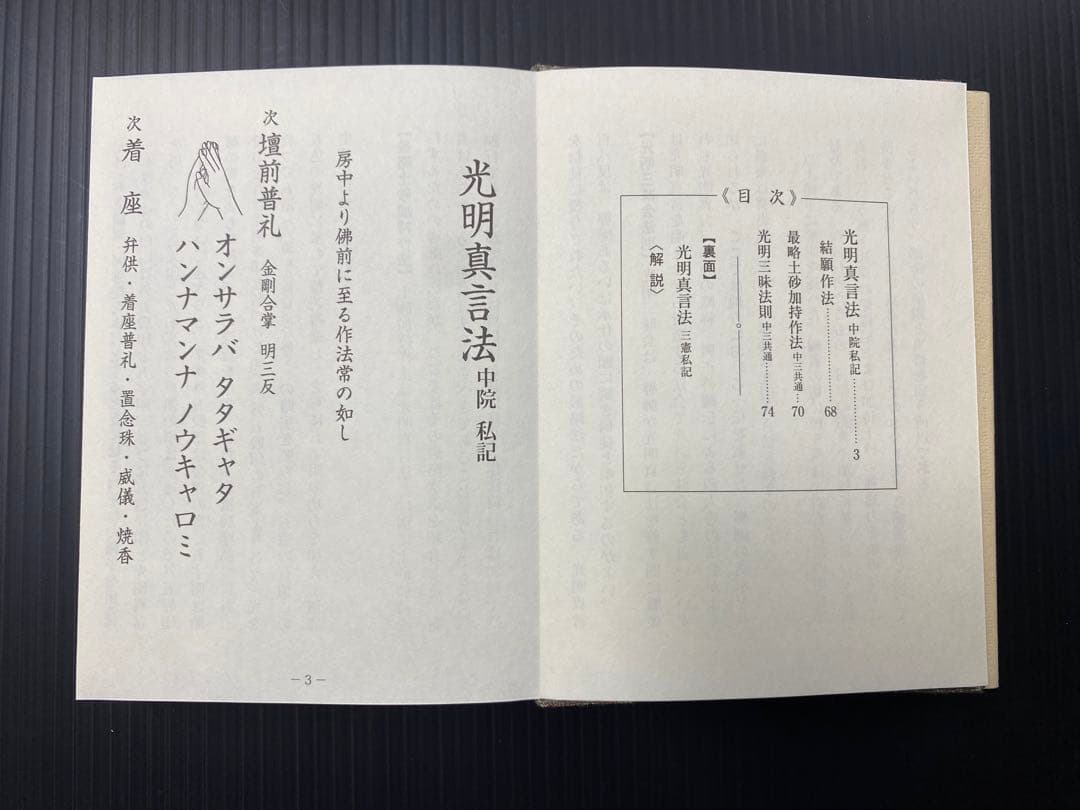 《目次》
光明真言法 中院私記…………3
結願作法…………68
最略土砂加持作法 中三共通……70
光明三昧法則 中三共通……74
【裏面】
光明真言法 三憲私記
〈解説〉
光明真言法 中院 私記
房中より佛前に至る作法常の如し
次 壇前普礼 金剛合掌 明三反
オンサラバ タタギャタ
ハンナマンナ ノウキャロミ
次 着座 弁供・着座普礼・置念珠・威儀・焼香
－3－